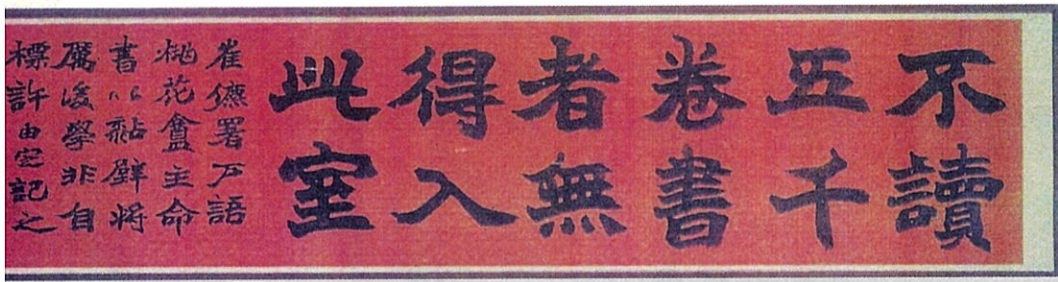 不讀
五千
卷書
者無
得入
此室
崔儦署戶語
桃花盦主命
書以黏壁將
厲後學非自
標許由它記之